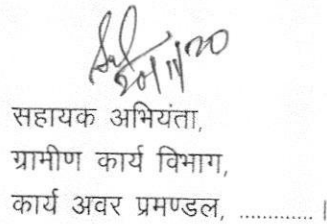 20/11/20
सहायक अभियंता,
ग्रामीण कार्य विभाग,
कार्य अवर प्रमण्डल, ............. ।